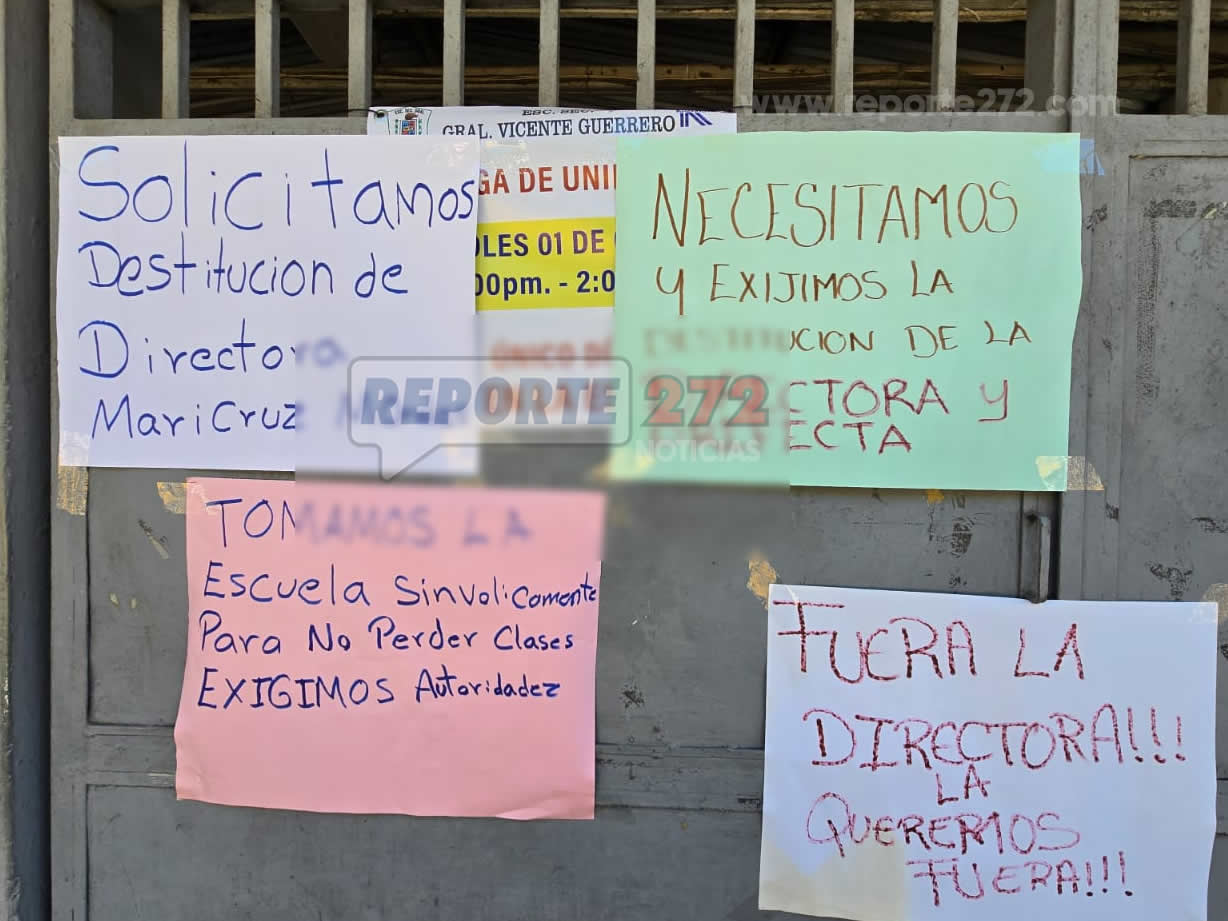 www.reporte272.com
ESC. SEC.
GRAL. VICENTE GUERRERO
GA DE UNI
OLES 01 DE
00pm. - 2:0
ÚNICO DÍ
Solicitamos
Destitucion de
Directora
MariCruz
NECESITAMOS
y EXIJIMOS LA
DESTITUCION DE LA
CTORA y
ECTA
REPORTE 272
NOTICIAS
TOMAMOS LA
Escuela Sinvolicamente
Para No Perder Clases
EXIGIMOS Autoridadez
FUERA LA
DIRECTORA!!!
LA
QUEREMOS
FUERA!!!